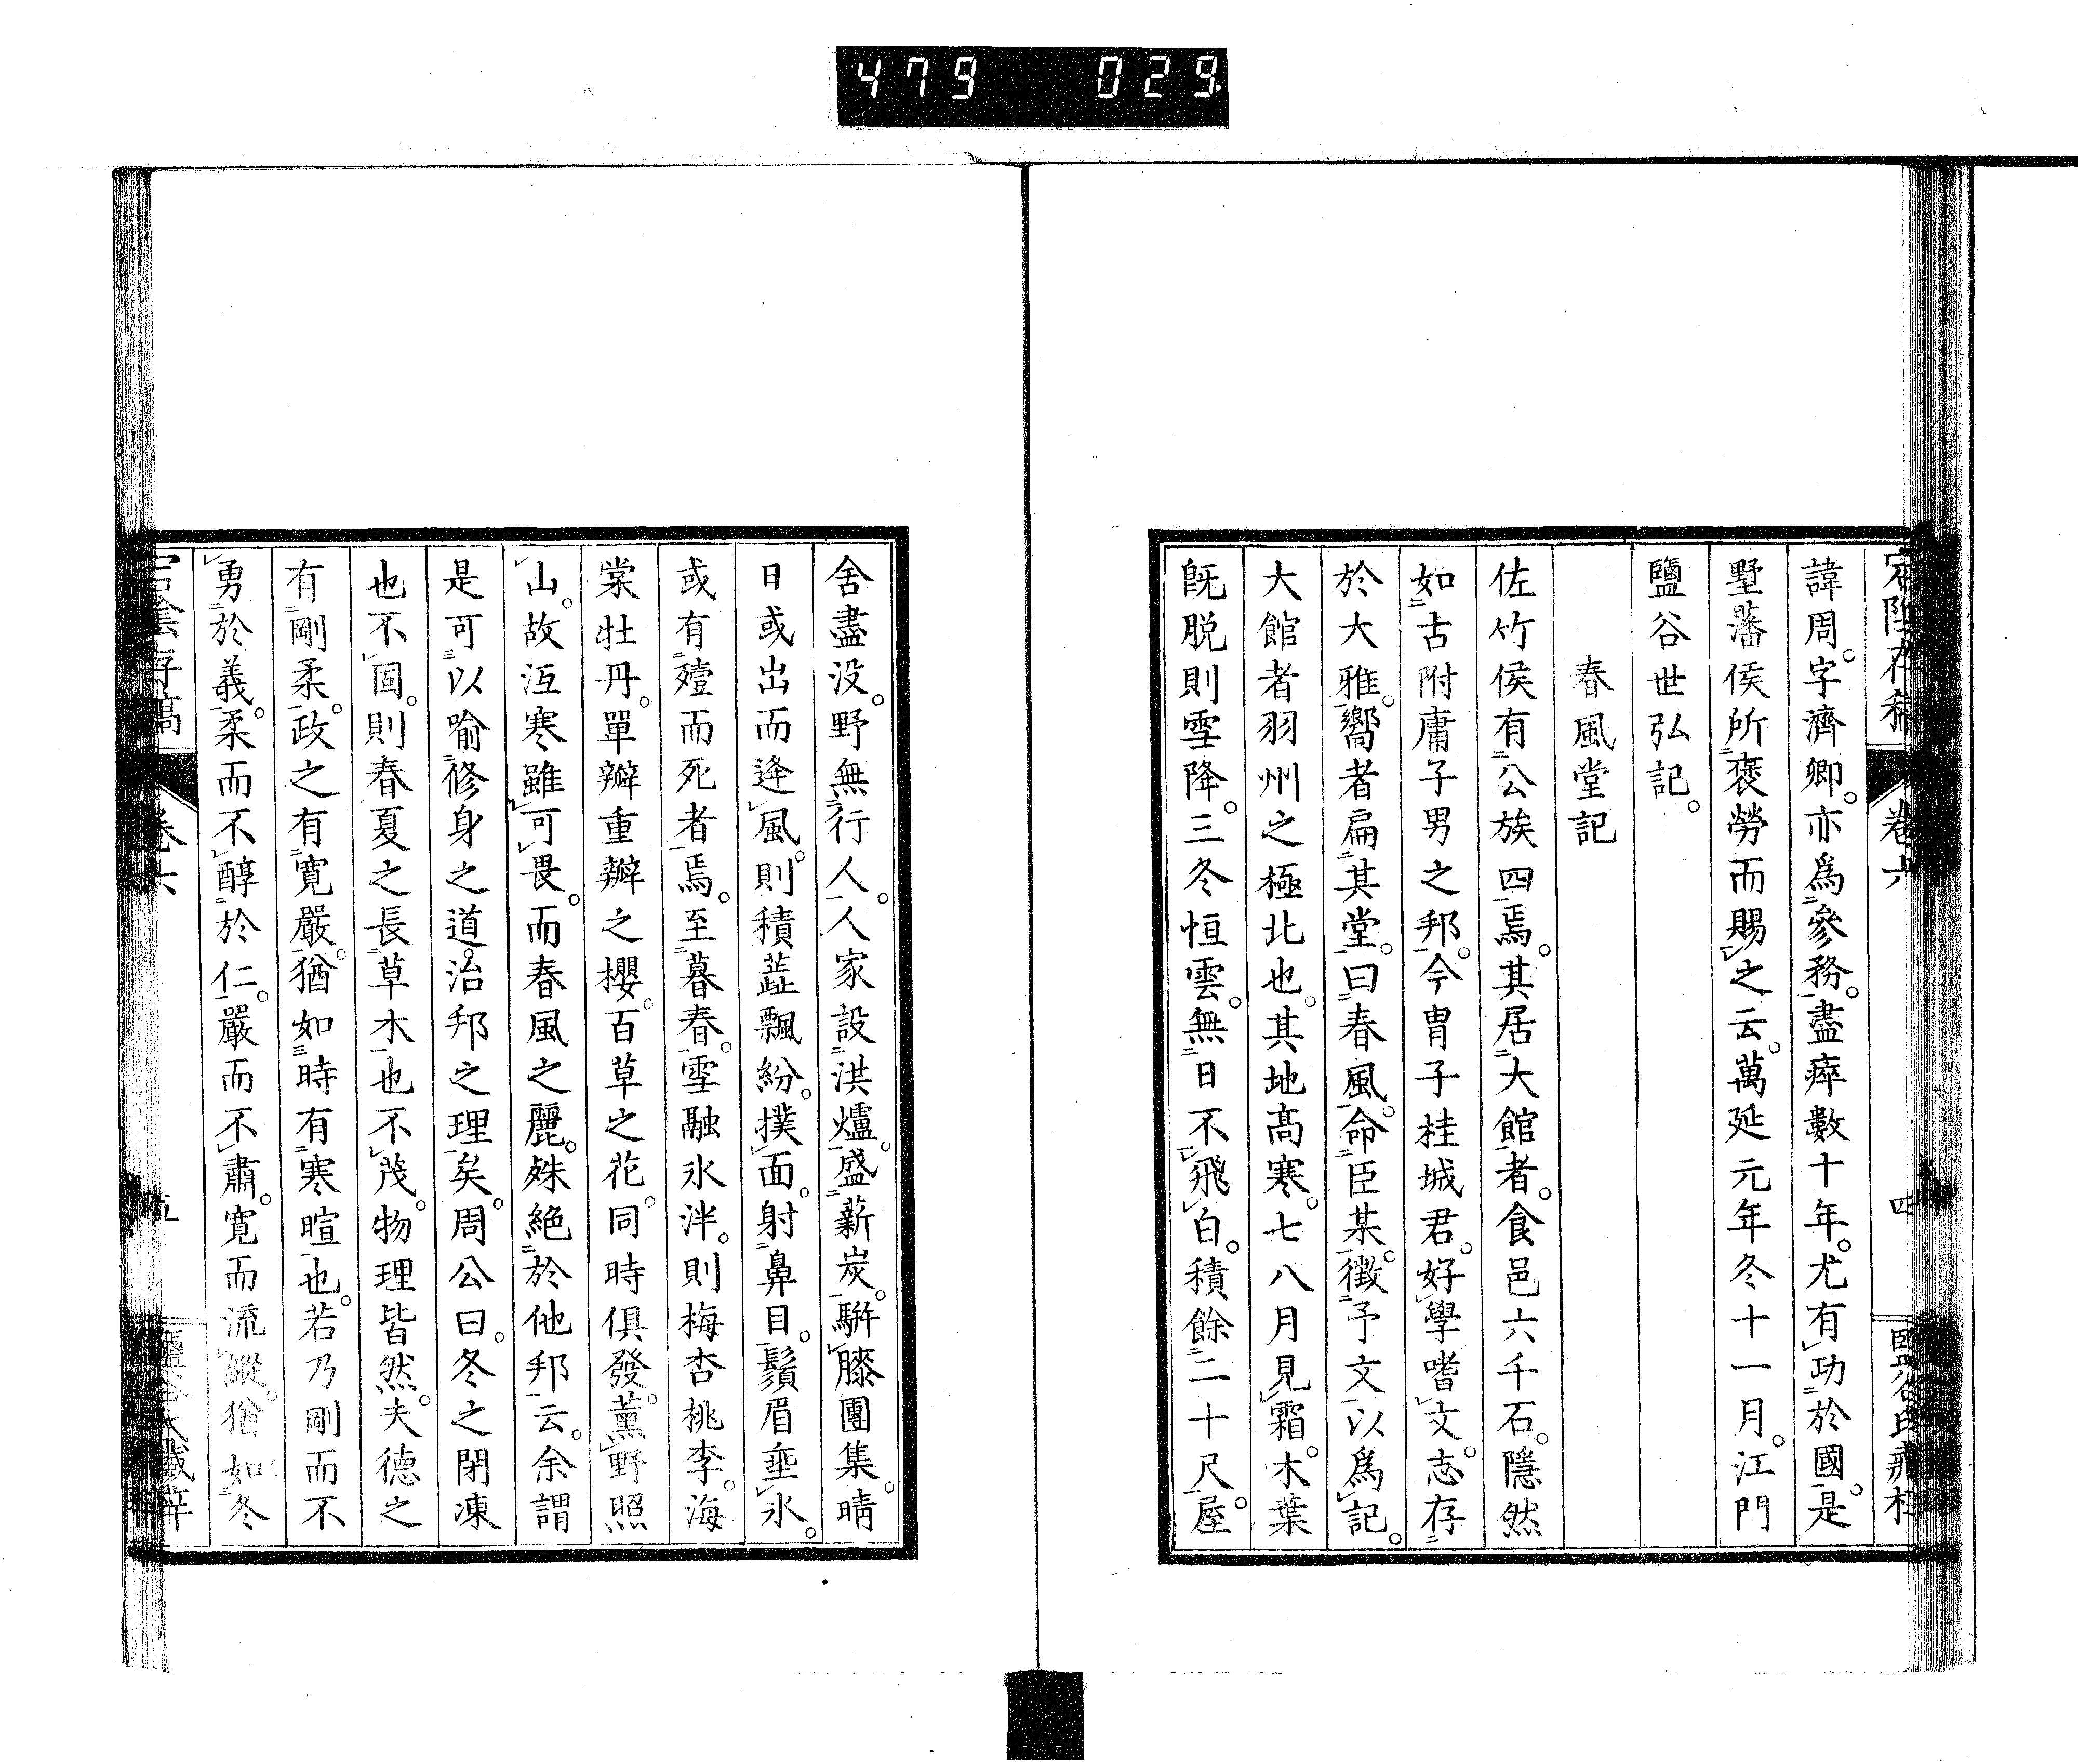 479 029
宕陰存稿 卷六 四
諱周。字濟卿。亦爲參務。盡瘁數十年。尤有功於國。是
墅藩侯所褒勞而賜之云。萬延元年冬十一月。江門
鹽谷世弘記。
春風堂記
佐竹侯有公族四焉。其居大館者。食邑六千石。隱然
如古附庸子男之邦。今冑子桂城君。好學嗜文。志存
於大雅。嚮者扁其堂。曰春風。命臣某。徵予文以爲記。
大館者羽州之極北也。其地高寒。七八月見霜。木葉
旣脫則雪降。三冬恒雲。無日不飛白。積餘二十尺。屋
舍盡没。野無行人。人家設洪爐。盛薪炭。駢膝團集。晴
日或出而逢風。則積𧄍飄紛。撲面。射鼻目。鬚眉垂氷。
或有殪而死者焉。至暮春。雪融氷泮。則梅杏桃李。海
棠牡丹。單瓣重瓣之櫻。百草之花。同時俱發。薰野照
山。故沍寒雖可畏。而春風之麗。殊絕於他邦云。余謂
是可以喻修身之道。治邦之理矣。周公曰。冬之閉凍
也不固。則春夏之長草木也不茂。物理皆然。夫德之
有剛柔。政之有寬嚴。猶如時有寒暄也。若乃剛而不
勇於義。柔而不醇於仁。嚴而不肅。寬而流縱。猶如冬
宕陰存稿 卷六 五